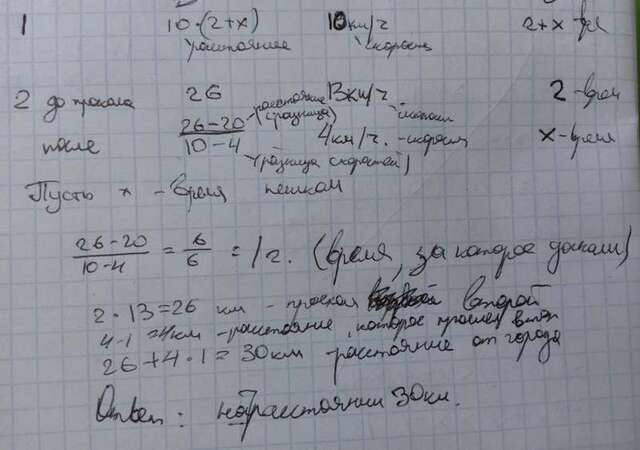 1 10·(2+x) 10км/г 2+x
расстояние скорость
2 до прокола 26 13км/г. -скорость 2 -врем
расстояние
(разница)
после 26-20 4км/г. -скорость x -время
10-4 (разница скоростей)
Пусть x - время пешком
26-20/10-4 = 6/6 = 1г. (время, за которое догнали)
2·13=26 км - проехал второй
4·1=4км -расстояние, которое прошел втор
26+4·1=30км -расстояние от города
Ответ: на расстоянии 30км.